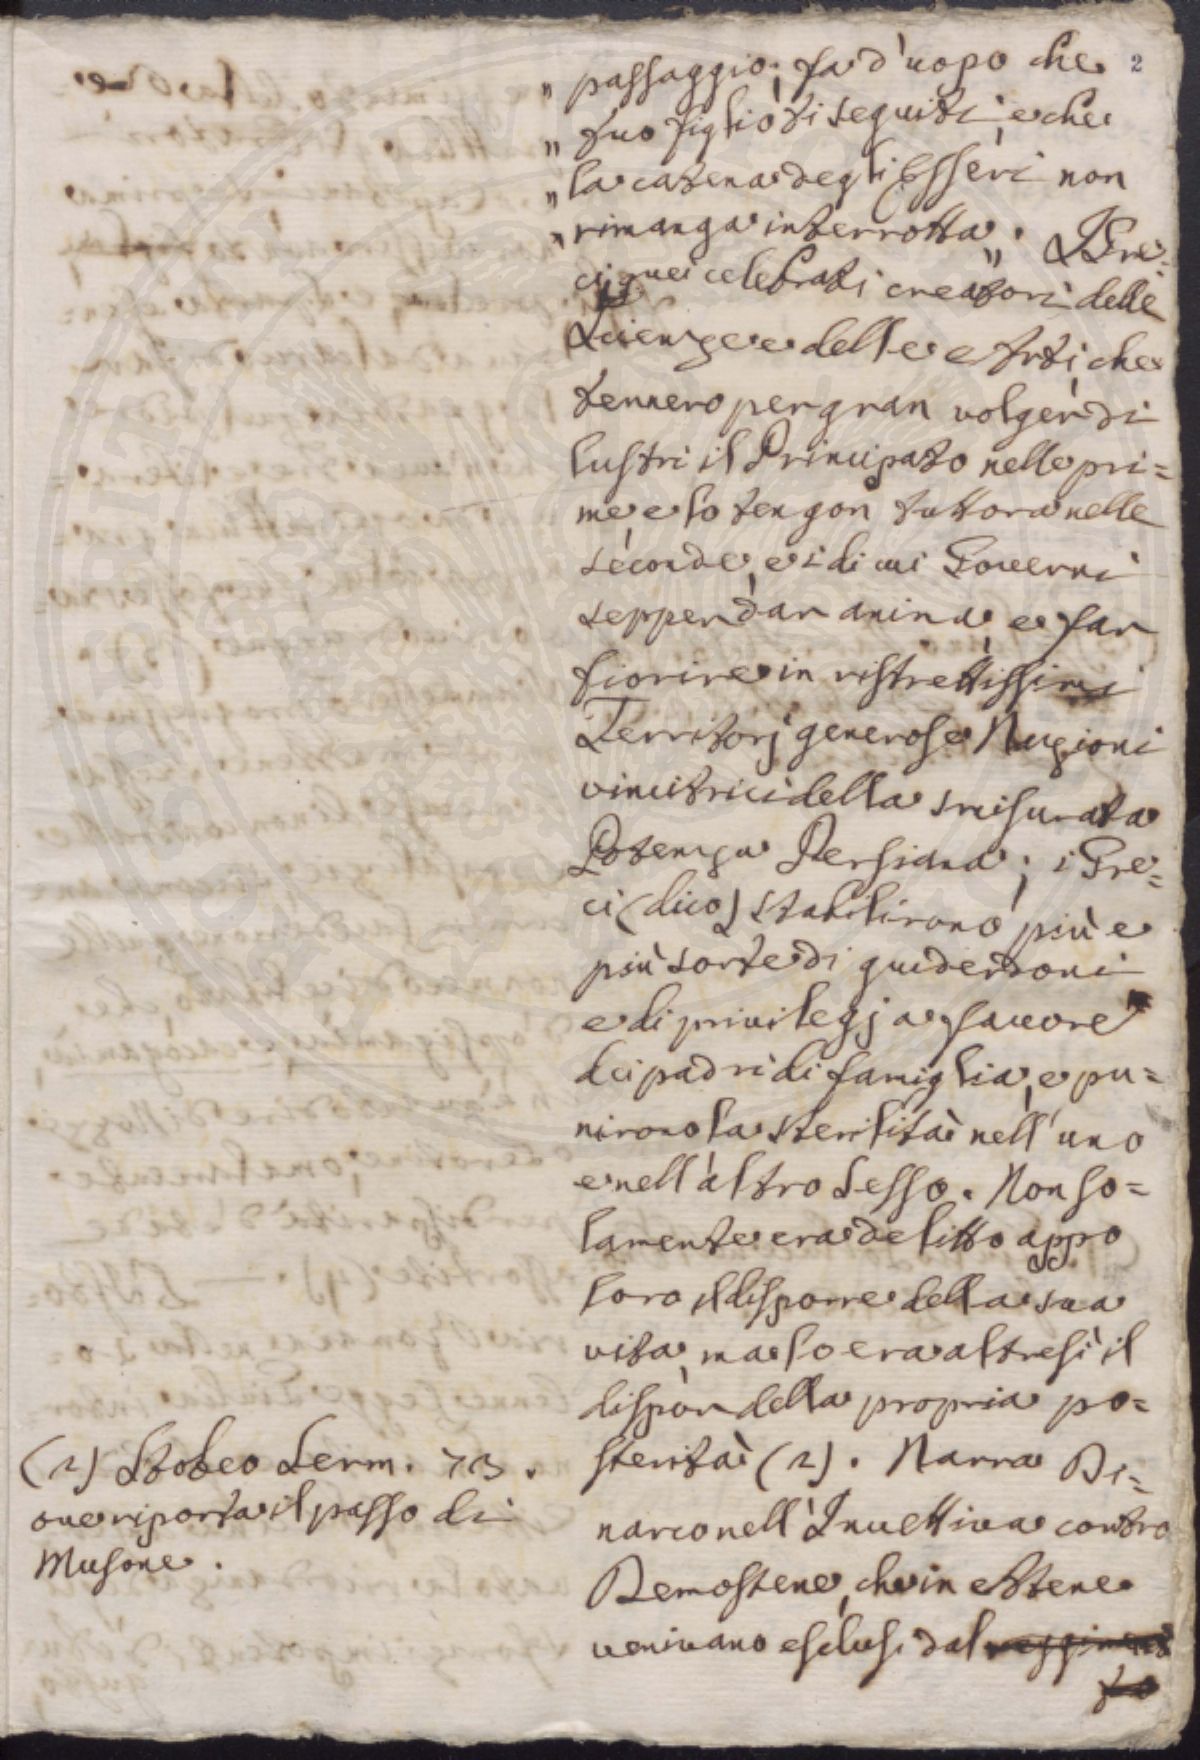 2
„ passaggio; fa d'uopo che
„ tuo figlio ti seguiti, e che
„ la catena degli Esseri non
„ rimanga interrotta „. I Gre=
ci, quei celebrati creatori delle
Scienze e delle Arti, che
tennero per gran volger di
lustri il Principato nelle pri=
me, e lo tengon tuttora nelle
seconde, e i di cui Governi
sepper dar anima, e far
fiorire in ristrettissimi
Territorj generose Nazioni
vincitrici della smisurata
Potenza Persiana; i Gre=
ci (dico) stabilirono più e
più sorte di guiderdoni
e di privilegj a favore
dei padri di famiglia, e pu=
nirono la sterilità nell'uno
e nell'altro Sesso. Non so=
lamente era delitto appo
loro il disporre della sua
vita, ma lo era altresì il
dispor della propria po=
sterità (2). Narra Di=
narco nell'Invettiva contro
Demostene, che in Attene
venivano esclusi dal reggimen
to
(2) Stobeo Serm. 73.
ove riporta il passo di
Musone.